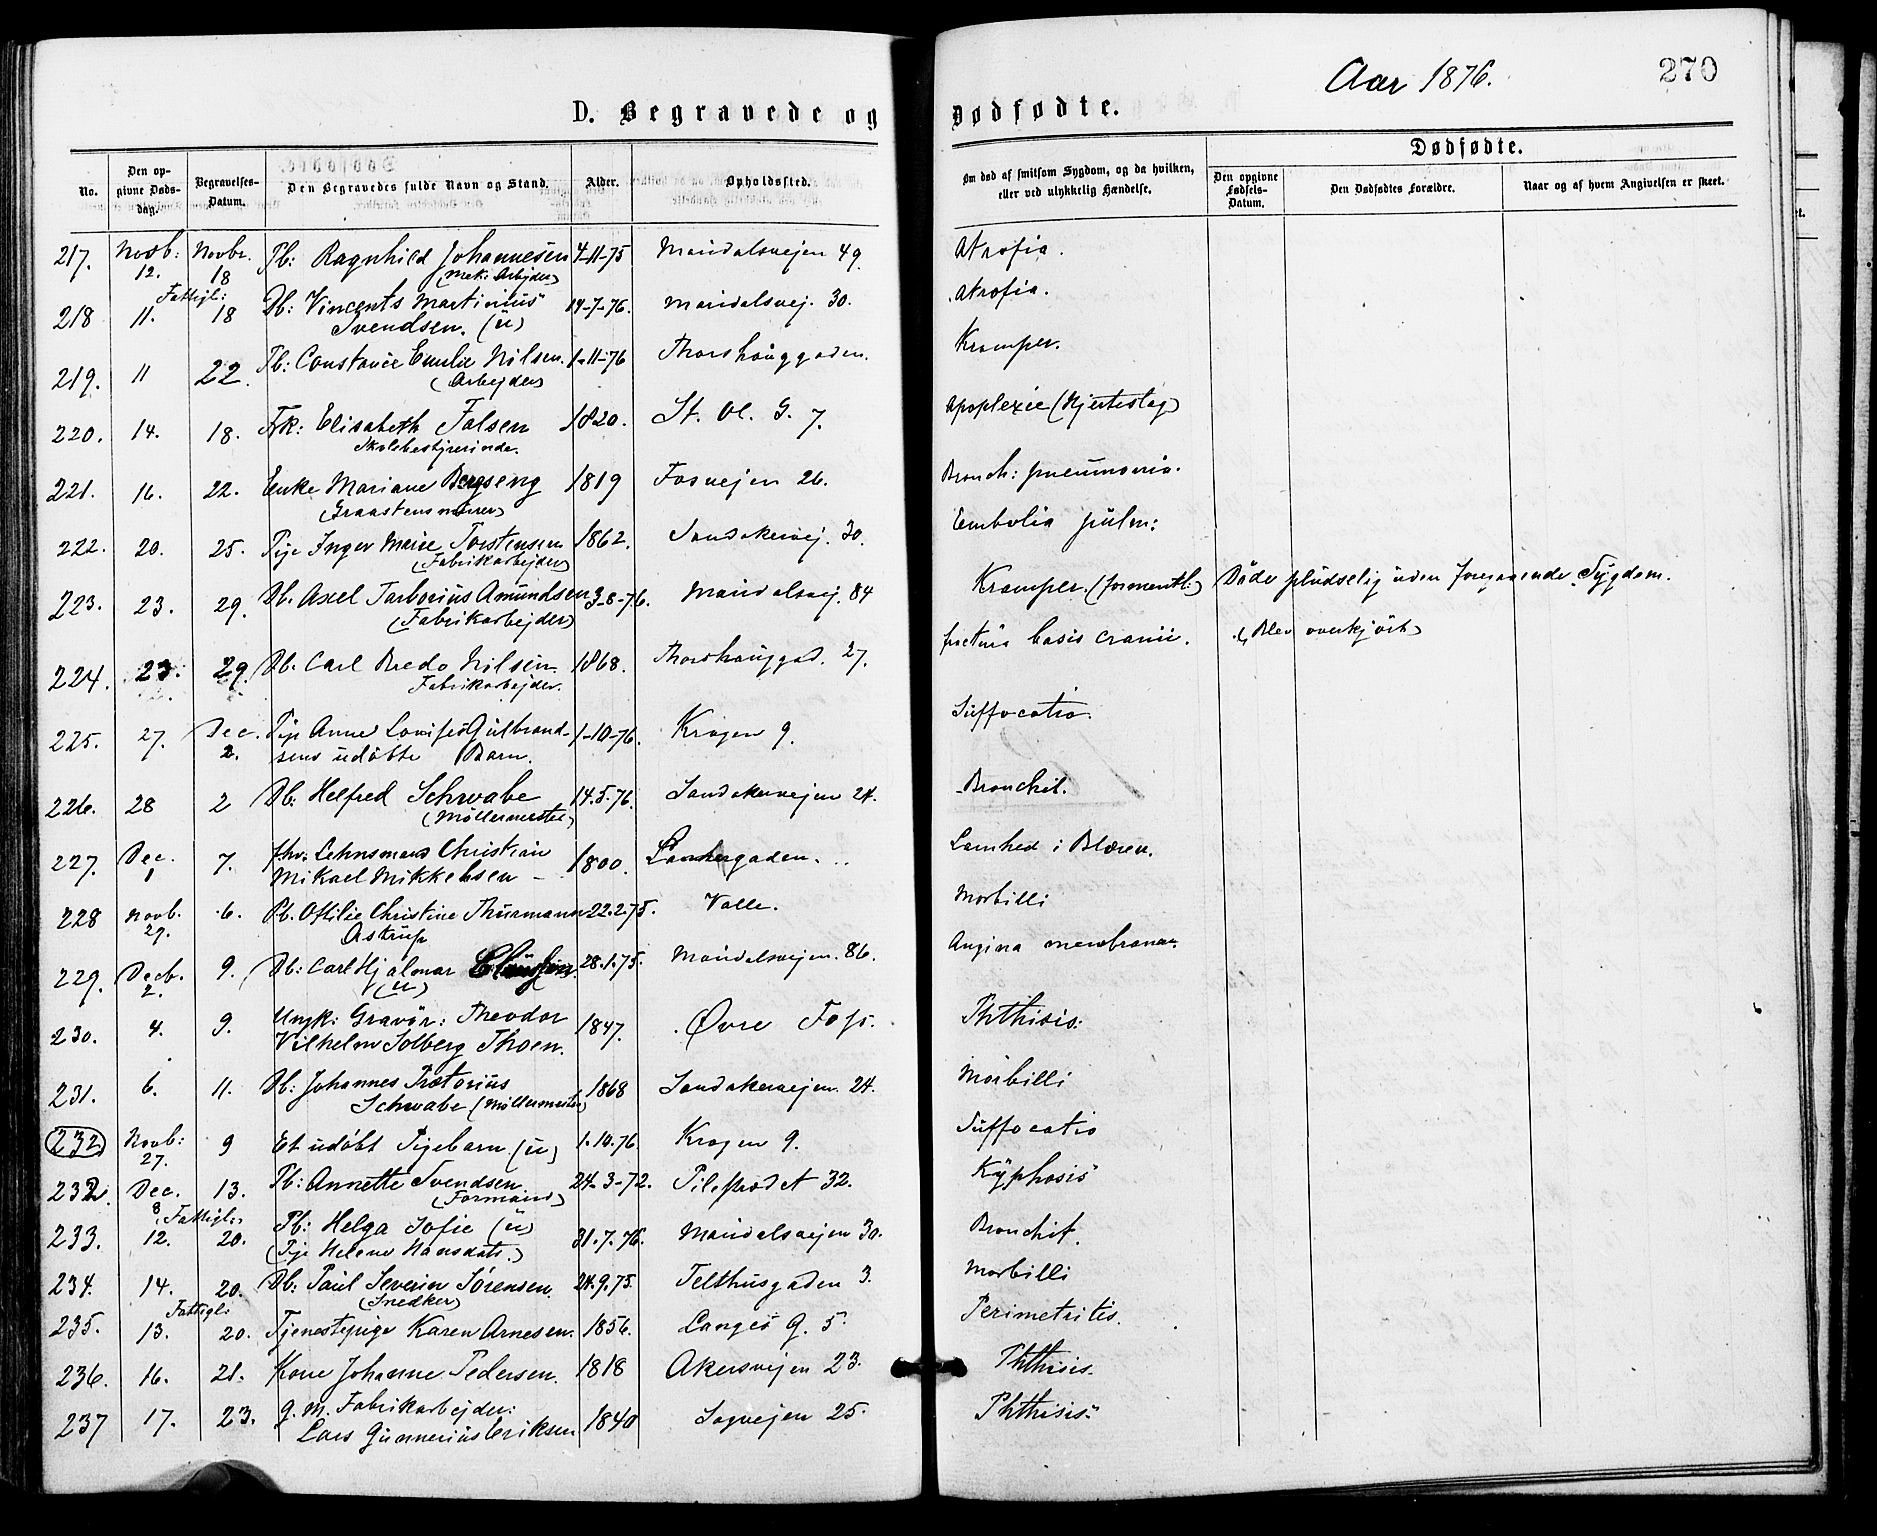 Aar 1876.
270
D. Begravede og Dødfødte.
No.
Den opgivne Dødsdag.
Begravelses-Datum.
Den Begravedes fulde Navn og Stand.
Alder.
Opholdssted.
Om død af smitsom Sygdom, og da hvilken, eller ved ulykkelig Hændelse.
Dødfødte.
Den opgivne Fødsels-Datum.
Den Dødfødtes Forældre.
Naar og af hvem Angivelsen er skeet.
217. Novb: 12. Novbr. 18 Pb: Ragnhild Johannesen (Mek: Arbejder) 4-11-75 Maridalsvejen 49. Atrofia.
Fattigl:
218 11. 18 Db: Vincents Martinius Svendsen. (u) 14-7-76. Maridalsvej. 30. Atrofia.
219. 11 22. Pb: Constance Emilie Nilsen. (Arbejder) 1-11-76 Thorshauggaden. Kramper.
220. 14. 18. Frk: Elisabeth Falsen Skolebestyrerinde. 1820. St. Ol. G. 7. Apoplexie (Hjerteslag)
221. 16. 22. Enke Mariane Bergseng (Graastensmurer) 1819 Fosvejen 26. Bronch: pneumonia.
222. 20. 25. Pige Inger Marie Torstensen (Fabrikarbejder) 1862. Sandakervej. 30. Embolia pulm:
223. 23. 29. Db. Axel Tarborius Amundsen (Fabrikarbejder) 3-8-76. Maridalsvej. 84 Kramper. (formentl:) Døde pludselig uden foregaaende Sygdom.
224. 23. 29. Db. Carl Bredo Nilsen Fabrikarbejder. 1868. Thorshauggad. 27. fractura basis cranii. (Blev overkjørt)
225. 27. Dec. 2. Pige Anne Lovises Gulbrandsens udøbte Barn. 1-10-76. Krogen 9. Suffocatio.
226. 28 2 Db: Helfred Schwabe (Møllermester) 14.5.76. Sandakervejen 24. Bronchit.
227. Dec. 1 7. fhv: Lehnsmand Christian Mikael Mikkelsen - 1800. gaden. Lamhed i Blæren.
228 Novb. 29. 6. Pb. Ottilie Christine Thurmann Astrup 22.2.75. Valle. Morbilli
229. Decb. 2. 9. Db: Carl Hjalmar Clausen (u) 28.1.75. Maridalsvejen. 86. Angina membranac.
230. 4. 9. Ungk: Gravør: Theodor Vilhelm Solberg Thoen. 1847. Øvre Foss. Phthisis.
231. 6. 11. Db: Johannes Prætorius Schwabe (Møllermester) 1868 Sandakervejen. 24. Morbilli
232 Novb: 27. 9 Et udøbt Pigebarn (u) 1.10.76. Krogen 9. Suffocatio
232. Dec. 8 13. Pb: Annette Svendsen (Formand) 24-3-72. Pilestrædet 32. Kyphosis
Fattigl:
233. 12. 20. Pb: Helga Sofie (u) (Pige Helene Hansdatt.) 31.7.76. Maridalsvejen 30. Bronchit.
234. 14. 20. Db: Paul Severin Sørensen. (Snedker) 24.9.75. Telthusgaden 3. Morbilli
Fattigl:
235. 13. 20. Tjenestepige Karen Arnesen. 1856. Langes G. 5. Perimetritis.
236. 16. 21. Kone Johanne Pedersen. 1818 Akersvejen 23. Phthisis.
237 17. 23. G. M. Fabrikarbejder: Lars Gunnerius Eriksen 1840 Sagvejen 25. Phthisis.